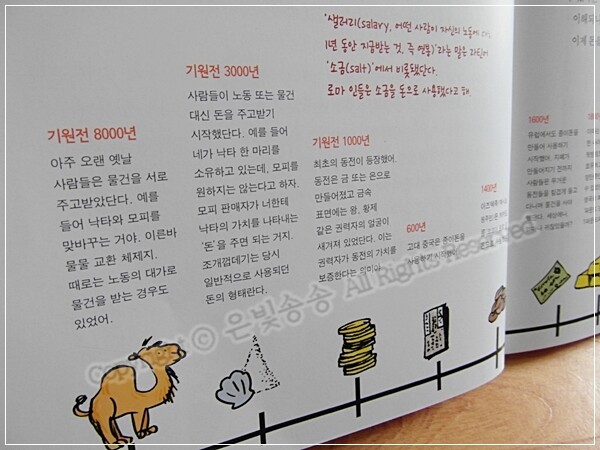 '샐러리(salary, 어떤 사람이 자신의 노동에 대
1년 동안 지급받는 것, 즉 연봉)'라는 말은 라틴어
'소금(salt)'에서 비롯됐단다.
로마 인들은 소금을 돈으로 사용했다고 해.
기원전 8000년
아주 오랜 옛날
사람들은 물건을 서로
주고받았단다. 예를
들어 낙타와 모피를
맞바꾸는 거야. 이른바
물물 교환 체제지.
때로는 노동의 대가로
물건을 받는 경우도
있었어.
기원전 3000년
사람들이 노동 또는 물건
대신 돈을 주고받기
시작했단다. 예를 들어
네가 낙타 한 마리를
소유하고 있는데, 모피를
원하지는 않는다고 하자.
모피 판매자가 너한테
낙타의 가치를 나타내는
'돈'을 주면 되는 거지.
조개껍데기는 당시
일반적으로 사용되던
돈의 형태란다.
기원전 1000년
최초의 동전이 등장했어.
동전은 금 또는 은으로
만들어졌고 금속
표면에는 왕, 황제
같은 권력자의 얼굴이
새겨져 있었단다. 이는
권력자가 동전의 가치를
보증한다는 의미야.
600년
고대 중국은 종이돈을
사용하기 시작했어.
1400년
1600년
유럽에서도 종이돈을
만들어 사용하기
시작했어. 지폐가
만들어지기 전까지
사람들은 무거운
이해되니
이제 돈을
Copyright © 은빛송송 All Rights Reserved